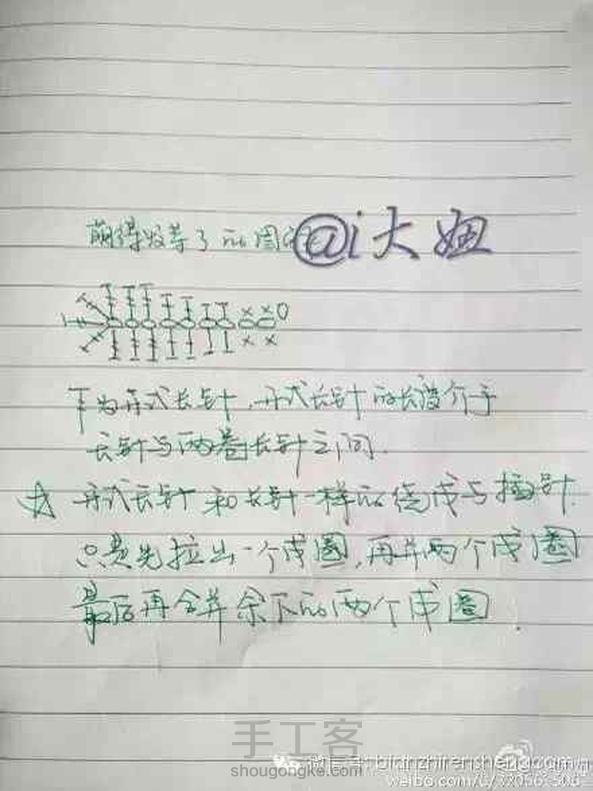 萌得照等了的图
@i大妞
下为开式长针，开式长针的长度介于
长针与两卷长针之间.
☆ 开式长针和长针一样的绕线与插针.
只是先拉出一个线圈，再并两个线圈
最后再合并余下的两个线圈.
手工客
shougongke.com
微信号: bianzhirensheng.com
weibo.com/u/